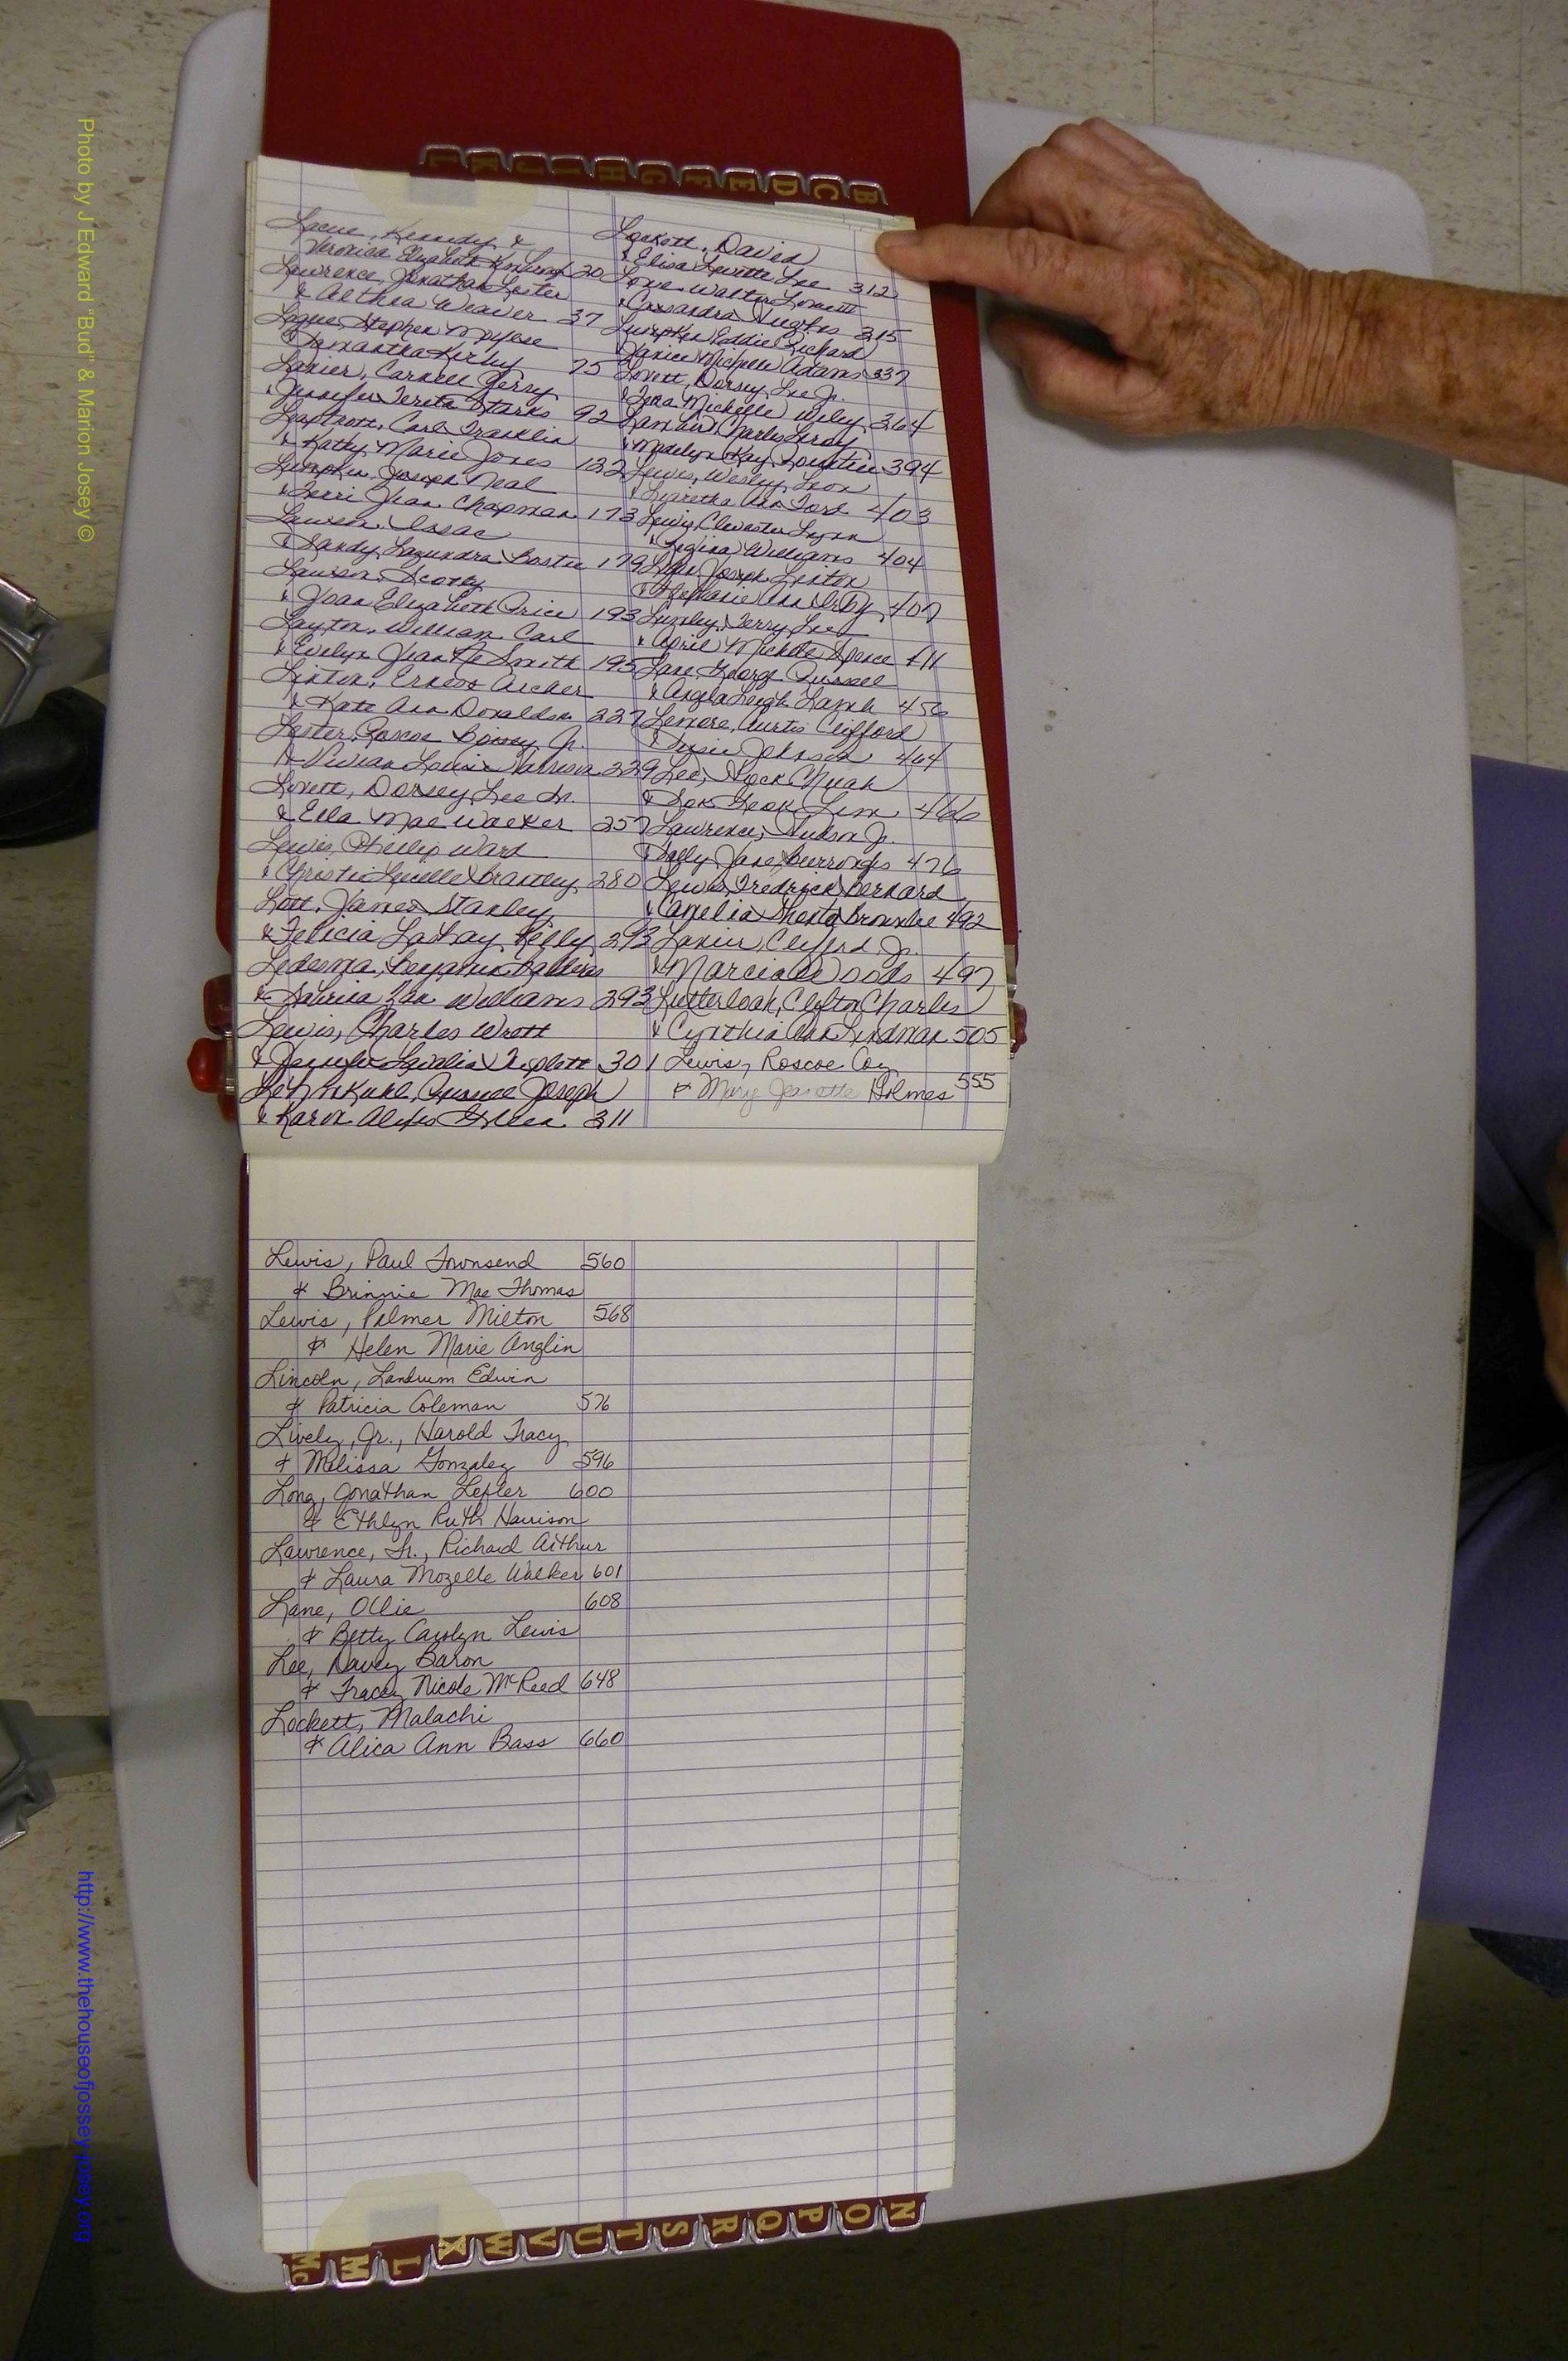 Photo by J Edward "Bud" & Marion Josey ©
http://www.thehouseofjossey-josey.org
L K J I H G F E D C B
Kennedy &
Veronica Elizabeth 20
Lawrence, Jonathan Lester
& Althea Weaver 37
Logue, Stephen
Samantha Kirby 75
Lanier, Carnell Jerry
& Jennifer Tereta Starks 92
Leaptrott, Carl Franklin
& Kathy Marie Jones 122
Lumpkin, Joseph Neal
& Terri Jean Chapman 173
Lawson, Issac
& Sandy Bostic 179
Lawson, Scotty
& Joan Elizabeth Price 193
Layton, William Carl
& Evelyn Smith 195
Linton, Ernest Archer
& Kate Ann Donaldson 227
Lester, Roscoe Jr.
& Vivian Louise Harrison 229
Lovett, Dorsey Lee Sr.
& Ella Mae Walker 257
Lewis, Phillip Ward
& Christi Luelle Brantley 280
Lott, James Stanley
& Felicia LaKay Kelly 293
Ledesma, Benjamin
& Williams 293
Lewis, Charles Wrott
& Triplett 301
Joseph
& Karon 311
Lockett, David
& Elisa Lee 312
Love, Walter
& Cassandra Hughes 315
Lumpkin, Eddie Richard
& Janice Michele Adams 337
Lovett, Dorsey Lee Jr.
& Tina Michelle Wiley 364
Charles Leroy
& Madelyn Kay 394
Lewis, Wesley Leon
& Laretha Ann Ford 403
Lewis, Clevester Lynn
& Regina Williams 404
Joseph Linton
& Stephanie Ann Irby 407
Terry Lee
& April Michele Spence 411
Lane, George Russell
& Angela Leigh Lamb 456
Lemore, Curtis Clifford
& Johnson 464
Lee, Hock Chuah
& Sok Geok Lim 466
Lawrence, Hudson Jr.
& Sally Jane Burroughs 476
Lewis, Fredrick Bernard
& Camelia Brownlee 492
Lanier, Clifford Jr.
& Marcia Woods 497
Lutterloah, Clifton Charles
& Cynthia Ann Lindman 505
Lewis, Roscoe Coy
& Mary Jeanette Holmes 555
Lewis, Paul Townsend 560
& Brinnie Mae Thomas
Lewis, Palmer Milton 568
& Helen Marie Anglin
Lincoln, Landrum Edwin
& Patricia Coleman 576
Lively, Jr., Harold Tracy
& Melissa Gonzalez 596
Long, Jonathan Lefler 600
& Ethlyn Ruth Harrison
Lawrence, Sr., Richard Arthur
& Laura Mozelle Walker 601
Lane, Ollie 608
& Betty Carolyn Lewis
Lee, Davey Baron
& Tracey Nicole McReed 648
Lockett, Malachi
& Alica Ann Bass 660
Mc M L X W V U T S R Q P O N